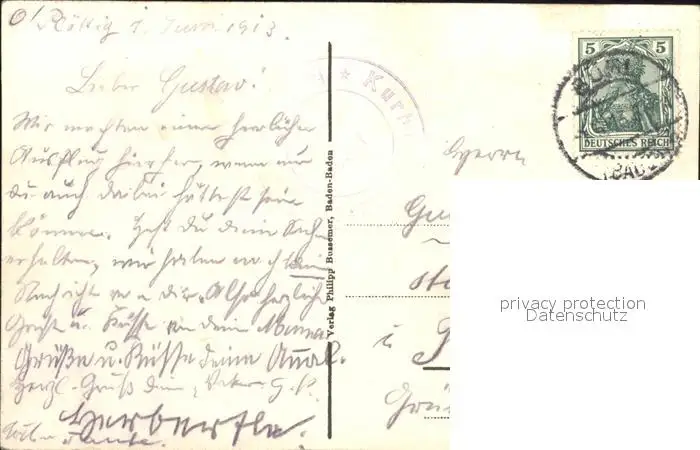 1. Juni 1913.
Lieber Gustav!
Wir machten einen herrlichen
Ausflug hierher, wenn nur
du auch dabei hättest sein
können. Hast du deine Sachen
erhalten, wir haben noch keine
Nachricht von dir. Also herzliche
Grüße u. Küsse von deiner Mama
Grüße u. Küsse deine Anna.
Herzl. Gruß dein
Herbertle.
Tante.
Verlag Philipp Bussemer, Baden-Baden
* Kurh
5 5
DEUTSCHES REICH
BÜHL
(BADEN)
Herrn
Gu
privacy protection
Datenschutz